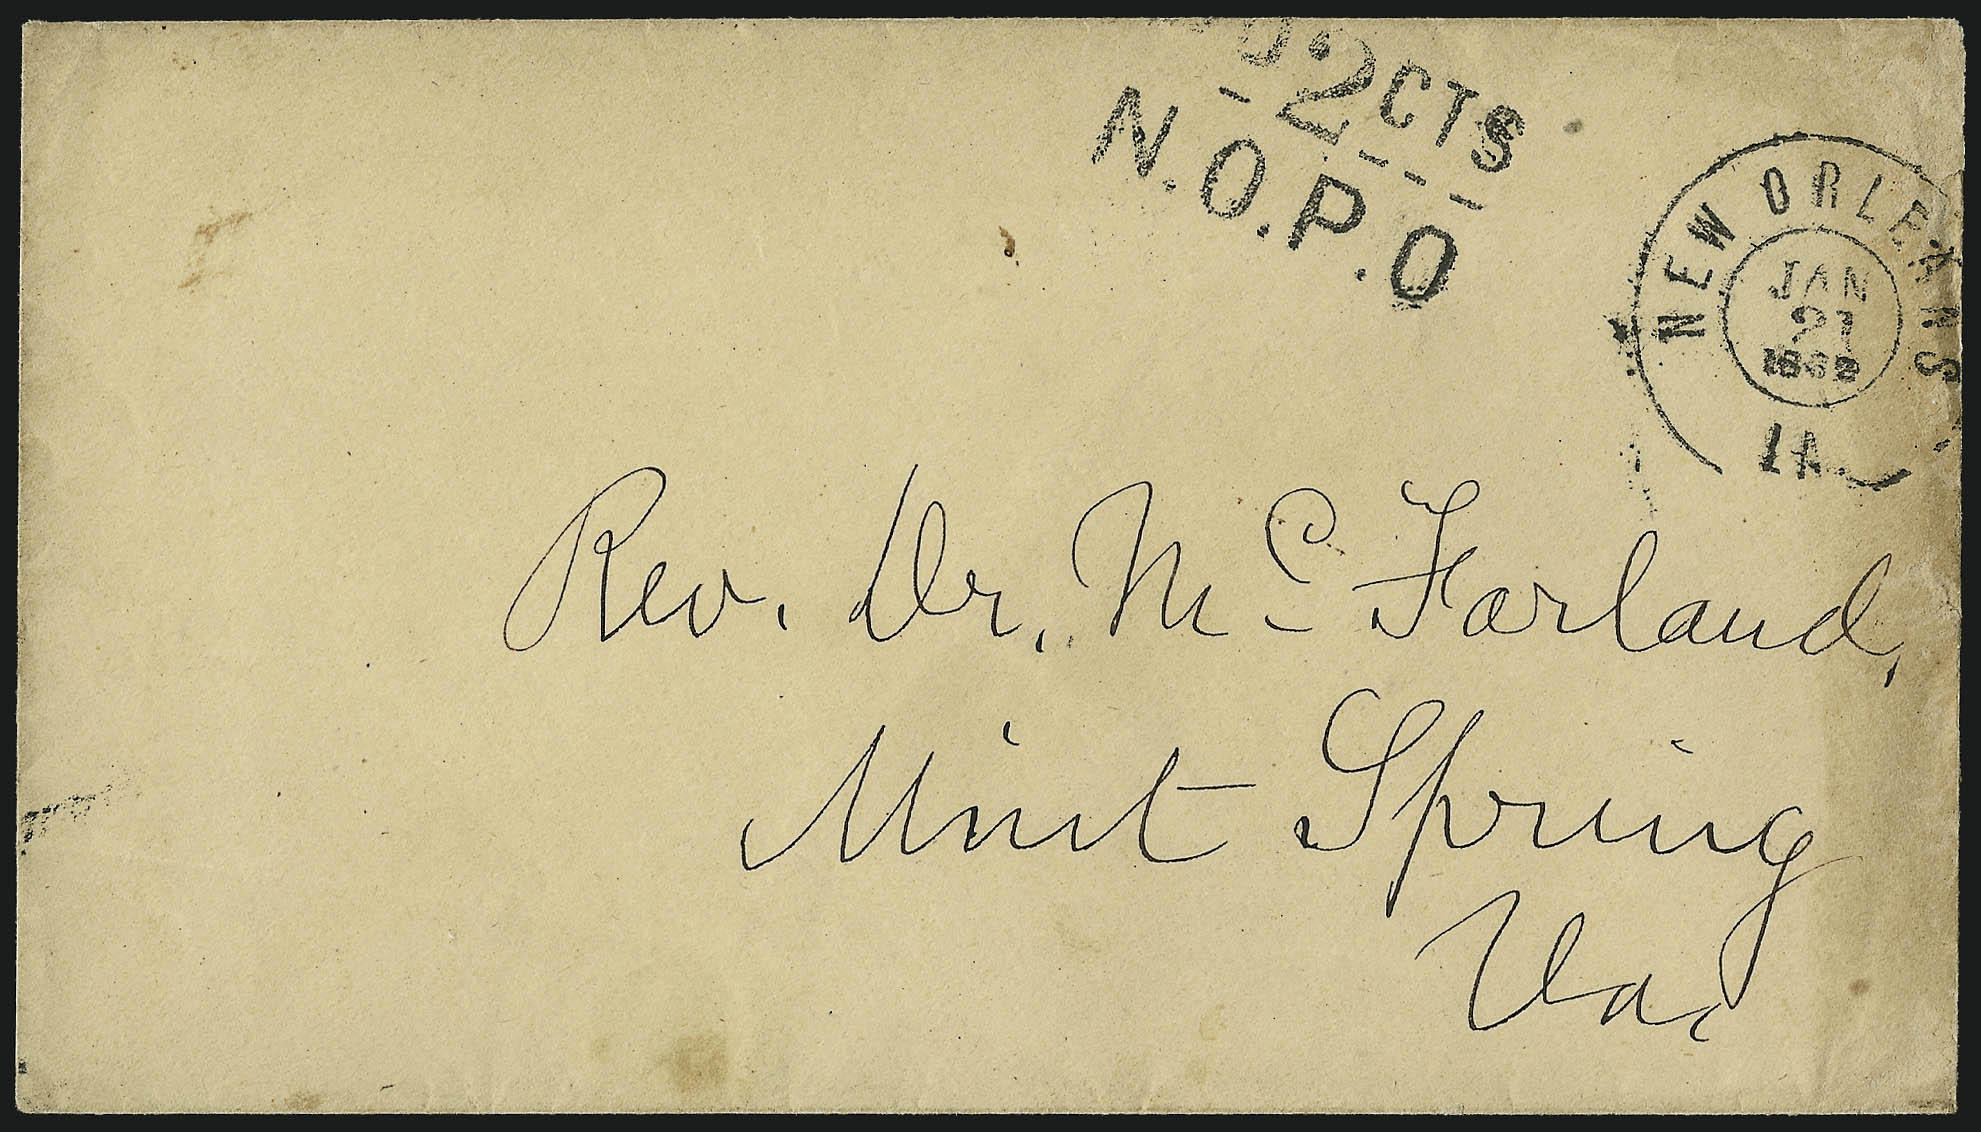 D 2 CTS
N.O.P.O
NEW ORLEANS
JAN
21
1862
LA.
Rev. Dr. McFarland,
Mint Spring
Va.